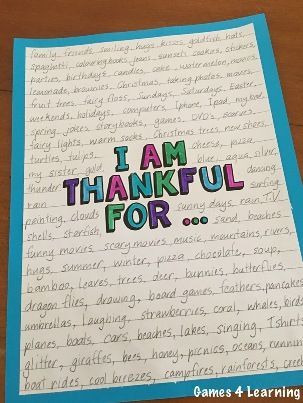 family, friends, smiling, hugs, kisses, goldfish, hats,
spaghetti, colouring books, jeans, sunsets, cookies, stickers,
parties, birthdays, candies, cake, watermelon, movies,
lemonade, brownies, Christmas, taking photos, movies,
fruit trees, fairy floss, Sundays, Saturdays, Easter,
weekends, holidays, computers, Iphone, Ipod, my bed,
spring, jokes, storybooks, games, DVD's, scarves,
fairy lights, warm socks, Christmas trees, new shoes,
turtles, tulips, cheese, pizza,
my sister, gold, blue, aqua, silver,
thunder dancing,
rain surfing
I AM
THANKFUL
FOR ...
painting, clouds sunny days, rain, T.V
shells, starfish, sand, beaches,
funny movies, scary movies, music, mountains, rivers,
hugs, summer, winter, pizza, chocolate, soup,
bamboo, leaves, trees, deer, bunnies, butterflies,
dragon flies, drawing, board games, feathers, pancakes,
umbrellas, laughing, strawberries, coral, whales, birds
planes, boats, cars, beaches, lakes, singing, Tshirts
glitter, giraffes, bees, honey, picnics, oceans, running
boat rides, cool breezes, campfires, rainforests, creeks
Games 4 Learning